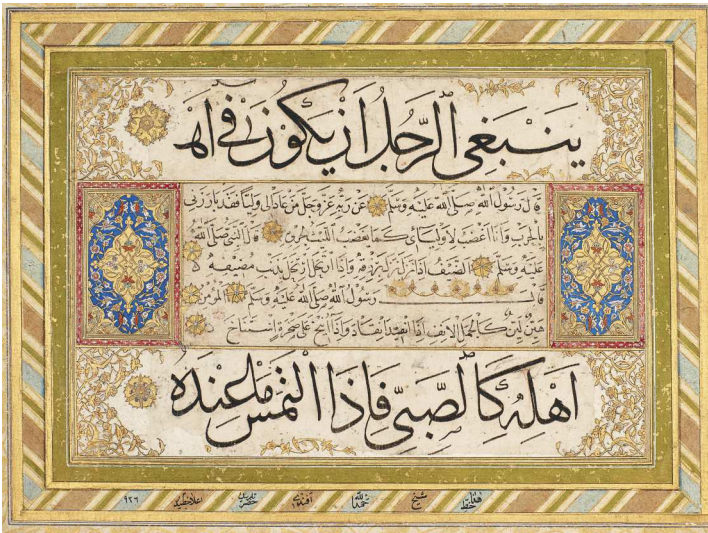 ينبغي الرجل ان يكون في اه
قال رسول الله صلى الله عليه وسلم عن ربه عز وجل من عادى لي وليا فقد بارزني
بالحرب وانا اغضب لاوليائي كما يغضب الليث قال النبي صلى الله
عليه وسلم الضيف اذا نزل نزل برزقه واذا ارتحل ارتحل بذنب مضيفه
قال رسول الله صلى الله عليه وسلم المؤمن
هين لين كالجمل الانف اذا انقيد انقاد واذا انيخ على صخرة استناخ
اهله كالصبي فاذا التمس ما عنده
شيخ حمد الله افندي ٩٢٦